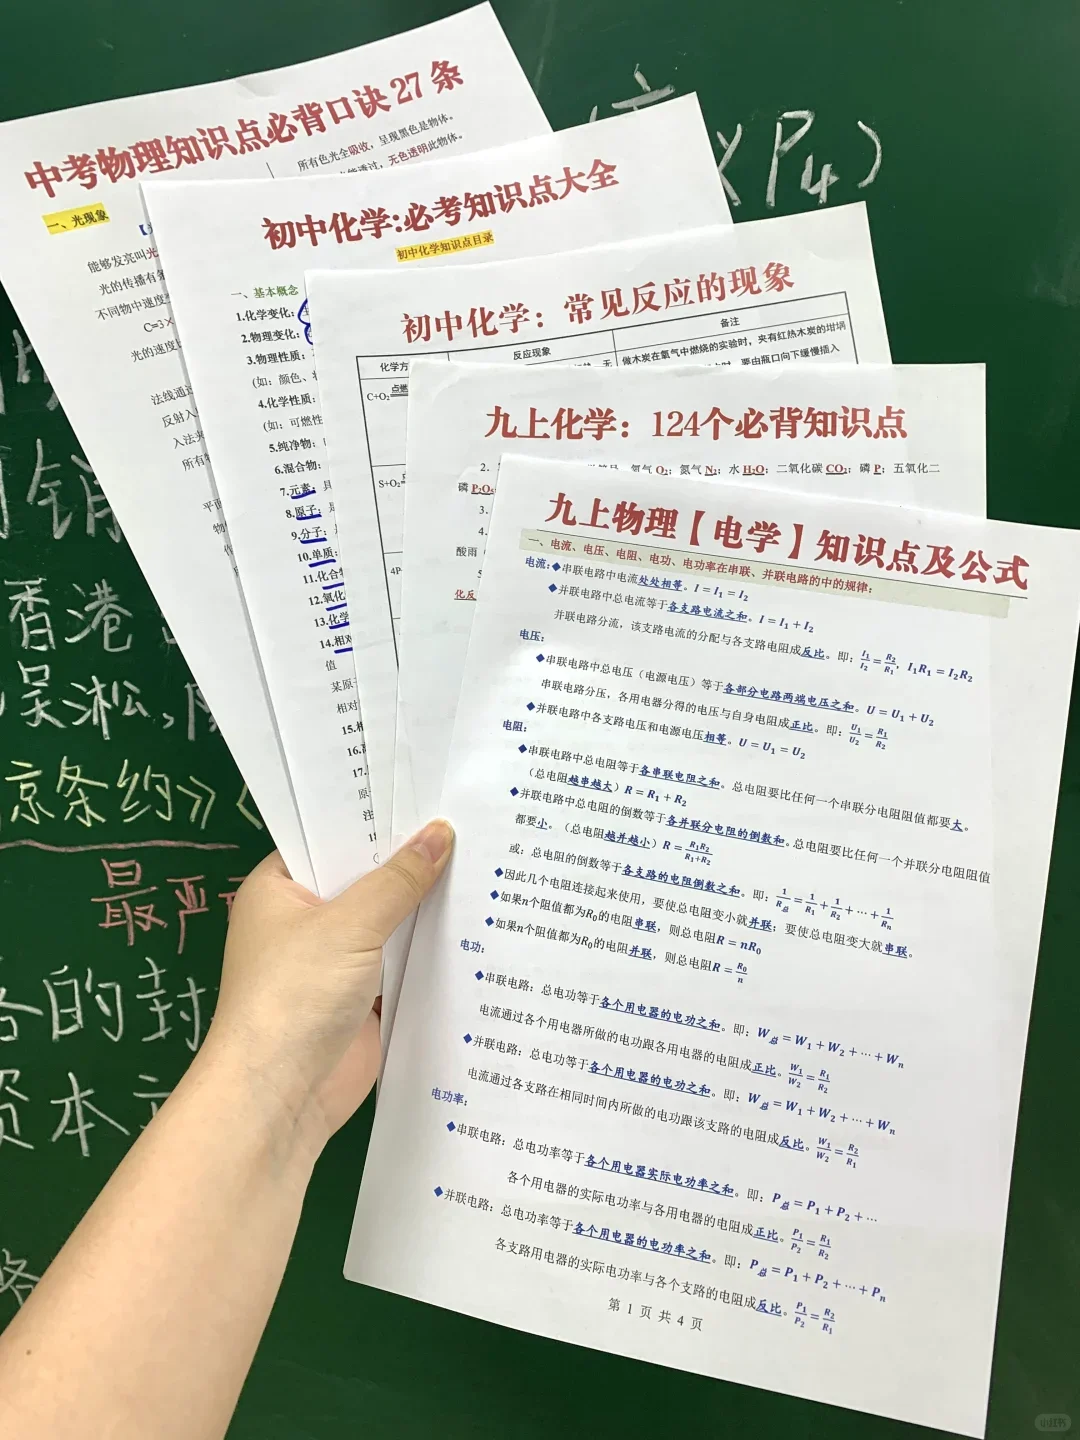 中考物理知识点必背口诀27条
一、光现象
所有色光全吸收，呈现黑色是物体。
能透过，无色透明此物体。
能够发亮叫光
光的传播有
不同物中速度
C=3×
光的速度
法线通过
反射入
入法夹
所有
平面
物
初中化学:必考知识点大全
初中化学知识点目录
一、基本概念
1.化学变化：
2.物理变化：
3.物理性质：
(如：颜色、状
4.化学性质：
(如：可燃性
5.纯净物：
6.混合物：
7.元素：
8.原子：
9.分子：
10.单质：
11.化合物
12.氧化
13.化学
14.相对
值
某原
相对
15.相
16.
17.
原
注
18
初中化学：常见反应的现象
化学方
反应现象
备注
C+O₂ 点燃
无
做木炭在氧气中燃烧的实验时，夹有红热木炭的坩埚
要由瓶口向下缓慢插入
S+O₂
4P
九上化学：124个必背知识点
2、
氧气 O₂；氮气 N₂；水 H₂O；二氧化碳 CO₂；磷 P；五氧化二
磷 P₂O₅
3、
4、
酸雨
5
化反
九上物理【电学】知识点及公式
一、电流、电压、电阻、电功、电功率在串联、并联电路的中的规律：
电流：◆串联电路中电流处处相等。I = I₁ = I₂
◆并联电路中总电流等于各支路电流之和。I = I₁ + I₂
并联电路分流，该支路电流的分配与各支路电阻成反比。即：I₁/I₂ = R₂/R₁，I₁R₁ = I₂R₂
电压：
◆串联电路中总电压（电源电压）等于各部分电路两端电压之和。U = U₁ + U₂
串联电路分压，各用电器分得的电压与自身电阻成正比。即：U₁/U₂ = R₁/R₂
◆并联电路中各支路电压和电源电压相等。U = U₁ = U₂
电阻：
◆串联电路中总电阻等于各串联电阻之和。总电阻要比任何一个串联分电阻阻值都要大。
（总电阻越串越大）R = R₁ + R₂
◆并联电路中总电阻的倒数等于各并联分电阻的倒数和。总电阻要比任何一个并联分电阻阻值
都要小。（总电阻越并越小）R = R₁R₂/R₁+R₂
或：总电阻的倒数等于各支路的电阻倒数之和。即：1/R总 = 1/R₁ + 1/R₂ + ⋯ + 1/Rn
◆因此几个电阻连接起来使用，要使总电阻变小就并联；要使总电阻变大就串联。
◆如果n个阻值都为R₀的电阻串联，则总电阻R = nR₀
◆如果n个阻值都为R₀的电阻并联，则总电阻R = R₀/n
电功：
◆串联电路：总电功等于各个用电器的电功之和。即：W总 = W₁ + W₂ + ⋯ + Wn
电流通过各个用电器所做的电功跟各用电器的电阻成正比。W₁/W₂ = R₁/R₂
◆并联电路：总电功等于各个用电器的电功之和。即：W总 = W₁ + W₂ + ⋯ + Wn
电流通过各支路在相同时间内所做的电功跟该支路的电阻成反比。W₁/W₂ = R₂/R₁
电功率：
◆串联电路：总电功率等于各个用电器实际电功率之和。即：P总 = P₁ + P₂ + ⋯
各个用电器的实际电功率与各用电器的电阻成正比。P₁/P₂ = R₁/R₂
◆并联电路：总电功率等于各个用电器的电功率之和。即：P总 = P₁ + P₂ + ⋯ + Pn
各支路用电器的实际电功率与各个支路的电阻成反比。P₁/P₂ = R₂/R₁
第 1 页 共 4 页
(P₄)
销
香港
吴淞，
京条约》《
最严
的封
资本主
小红书